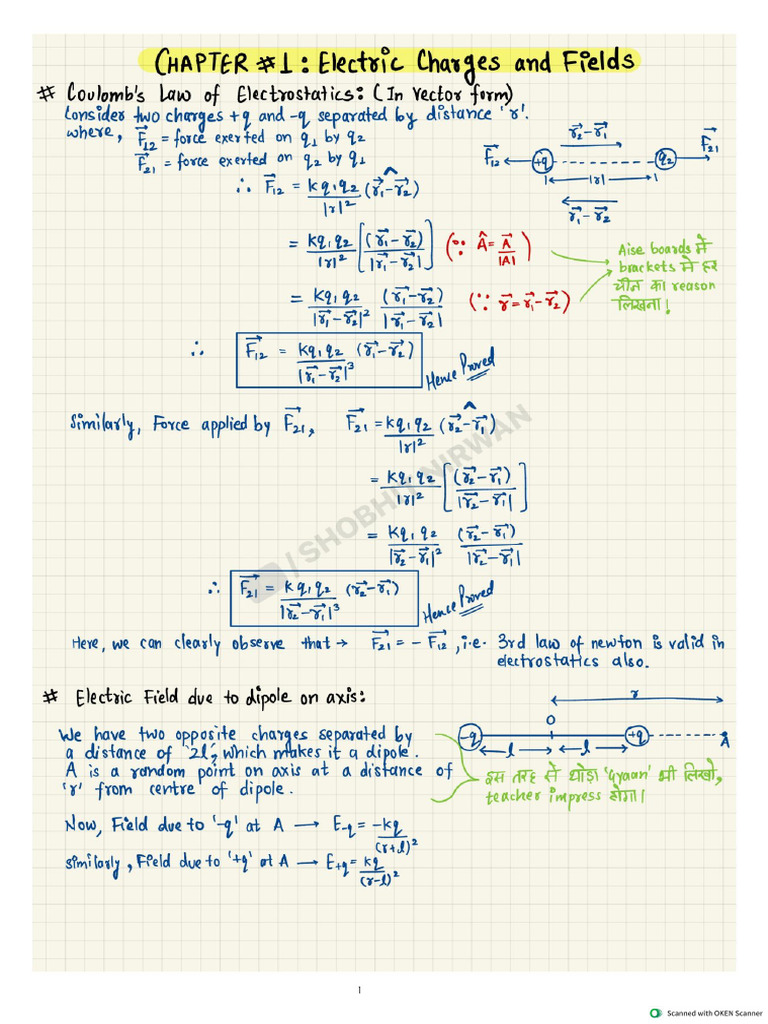 CHAPTER #1: Electric Charges and Fields
# Coulomb's Law of Electrostatics: (In Vector form)
Consider two charges +q and -q separated by distance 'r'.
where, F⃗₁₂ = force exerted on q₁ by q₂
F⃗₂₁ = force exerted on q₂ by q₁
r⃗₂-r⃗₁
F⃗₁₂ +q q₂ F⃗₂₁
|r|
r⃗₁-r⃗₂
∴ F⃗₁₂ = kq₁q₂/|r|² (r⃗₁-r⃗₂)^
= kq₁q₂/|r|² [(r⃗₁-r⃗₂)/|r⃗₁-r⃗₂|] (∵ Â = A⃗/|A|)
Aise boards में
brackets मे हर
चीज का reason
लिखना!
= kq₁q₂/|r⃗₁-r⃗₂|² (r⃗₁-r⃗₂)/|r⃗₁-r⃗₂| (∵ r⃗ = r⃗₁-r⃗₂)
∴ F⃗₁₂ = kq₁q₂/|r⃗₁-r⃗₂|³ (r⃗₁-r⃗₂) Hence Proved
Similarly, Force applied by F⃗₂₁, F⃗₂₁ = kq₁q₂/|r|² (r⃗₂-r⃗₁)^
= kq₁q₂/|r|² [(r⃗₂-r⃗₁)/|r⃗₂-r⃗₁|]
= kq₁q₂/|r⃗₂-r⃗₁|² (r⃗₂-r⃗₁)/|r⃗₂-r⃗₁|
∴ F⃗₂₁ = kq₁q₂/|r⃗₂-r⃗₁|³ (r⃗₂-r⃗₁) Hence Proved
/ SHOBHIT NIRWAN
Here, we can clearly observe that → F⃗₂₁ = - F⃗₁₂, i.e. 3rd law of newton is valid in
electrostatics also.
# Electric Field due to dipole on axis:
r
O
-q +q A
l l
We have two opposite charges separated by
a distance of '2l', which makes it a dipole.
A is a random point on axis at a distance of
'r' from centre of dipole.
इस तरह से थोड़ा 'Gyaan' भी लिखो,
teacher impress होगा।
Now, Field due to '-q' at A → E-q = -kq/(r+l)²
similarly, Field due to '+q' at A → E+q = kq/(r-l)²
1
Scanned with OKEN Scanner